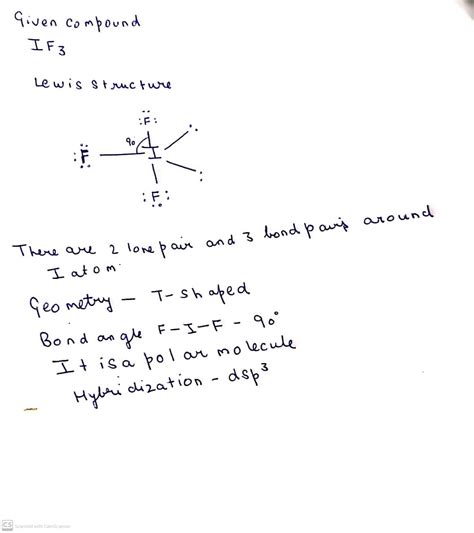 Given compound
IF3
Lewis structure
:F:
90
:F
I
:F:
There are 2 lone pair and 3 bond pairs around
I atom.
Geometry – T-shaped
Bond angle F-I-F - 90°
It is a polar molecule
Hybridization - dsp³
CS Scanned with CamScanner